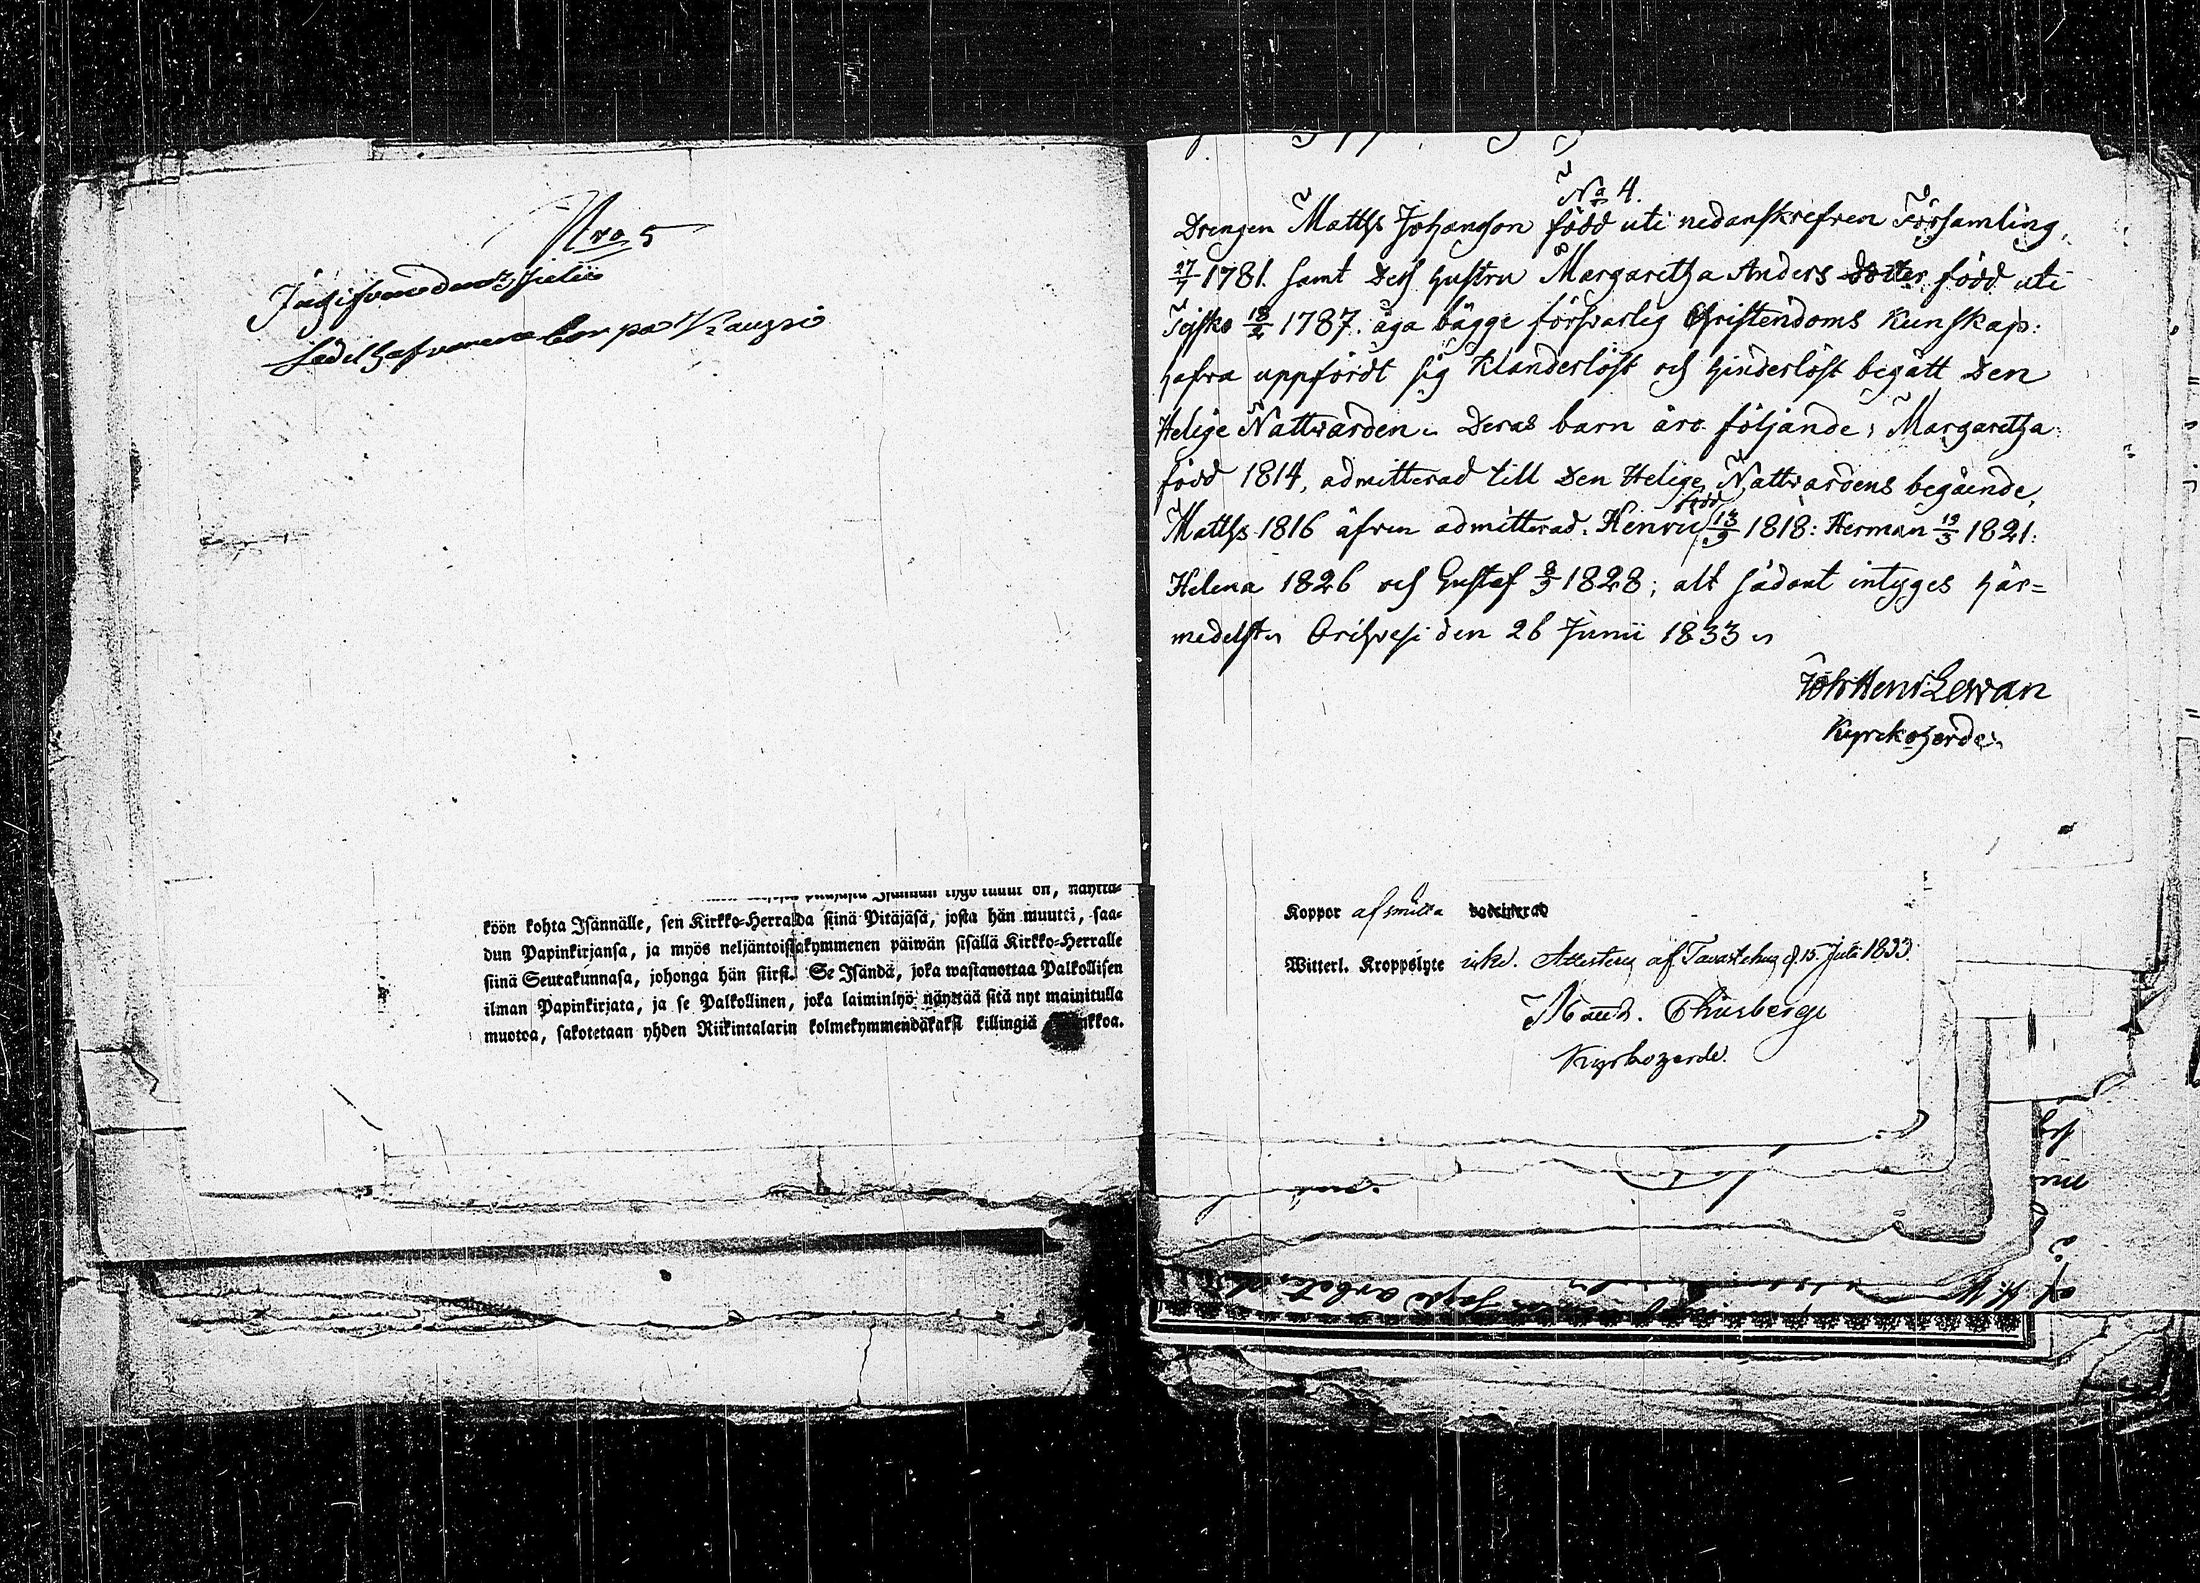 Nro 5
Ingifven den 3 Julii
Sedelhafvarena bor på Kauppi
köön kohta Isännälle, sen Kirkko-Herralda siinä Pitäjäsä, josta hän muutti, saa-
dun Papinkirjansa, ja myös neljäntoistakymmenen päiwän sisällä Kirkko-Herralle
siinä Seurakunnasa, johonga hän siirsi. Se Isändä, joka wastanottaa Palkollisen
ilman Papinkirjata, ja se Palkollinen, joka laiminlyö näyttää sitä nyt mainitulla
muotoa, sakotetaan yhden Riikintalarin kolmekymmendäkaksi killingiä
No 4.
Drengen Matths Johansson född uti nedanskrefven Församling,
27/7 1781. samt Dess hustru Margaretha Anders Dotter, född uti
Tejsko 18/2 1787. äga bägge försvarlig Christendoms Kunskap:
hafva uppfördt sig Klanderlöst och hinderlöst begått Den
Helige Nattwarden. Deras barn äro följande; Margaretha
född 1814, admitterad till Den Helige Nattwardens begående,
Matths 1816 äfven admitterad. Henric född 13/9 1818: Herman 19/3 1821:
Helena 1826 och Gustaf 8/9 1828; alt sådant intyges här=
medelst. Orihvesi den 26 Junii 1833
Joh: Henr: Lewan
Kyrkoherde.
Koppor af smitta vaccinerad
Witterl. Kroppslyte icke. Attesterer af Tavastehus d 15 Juli 1833.
Thurberg
Kyrkoherde.